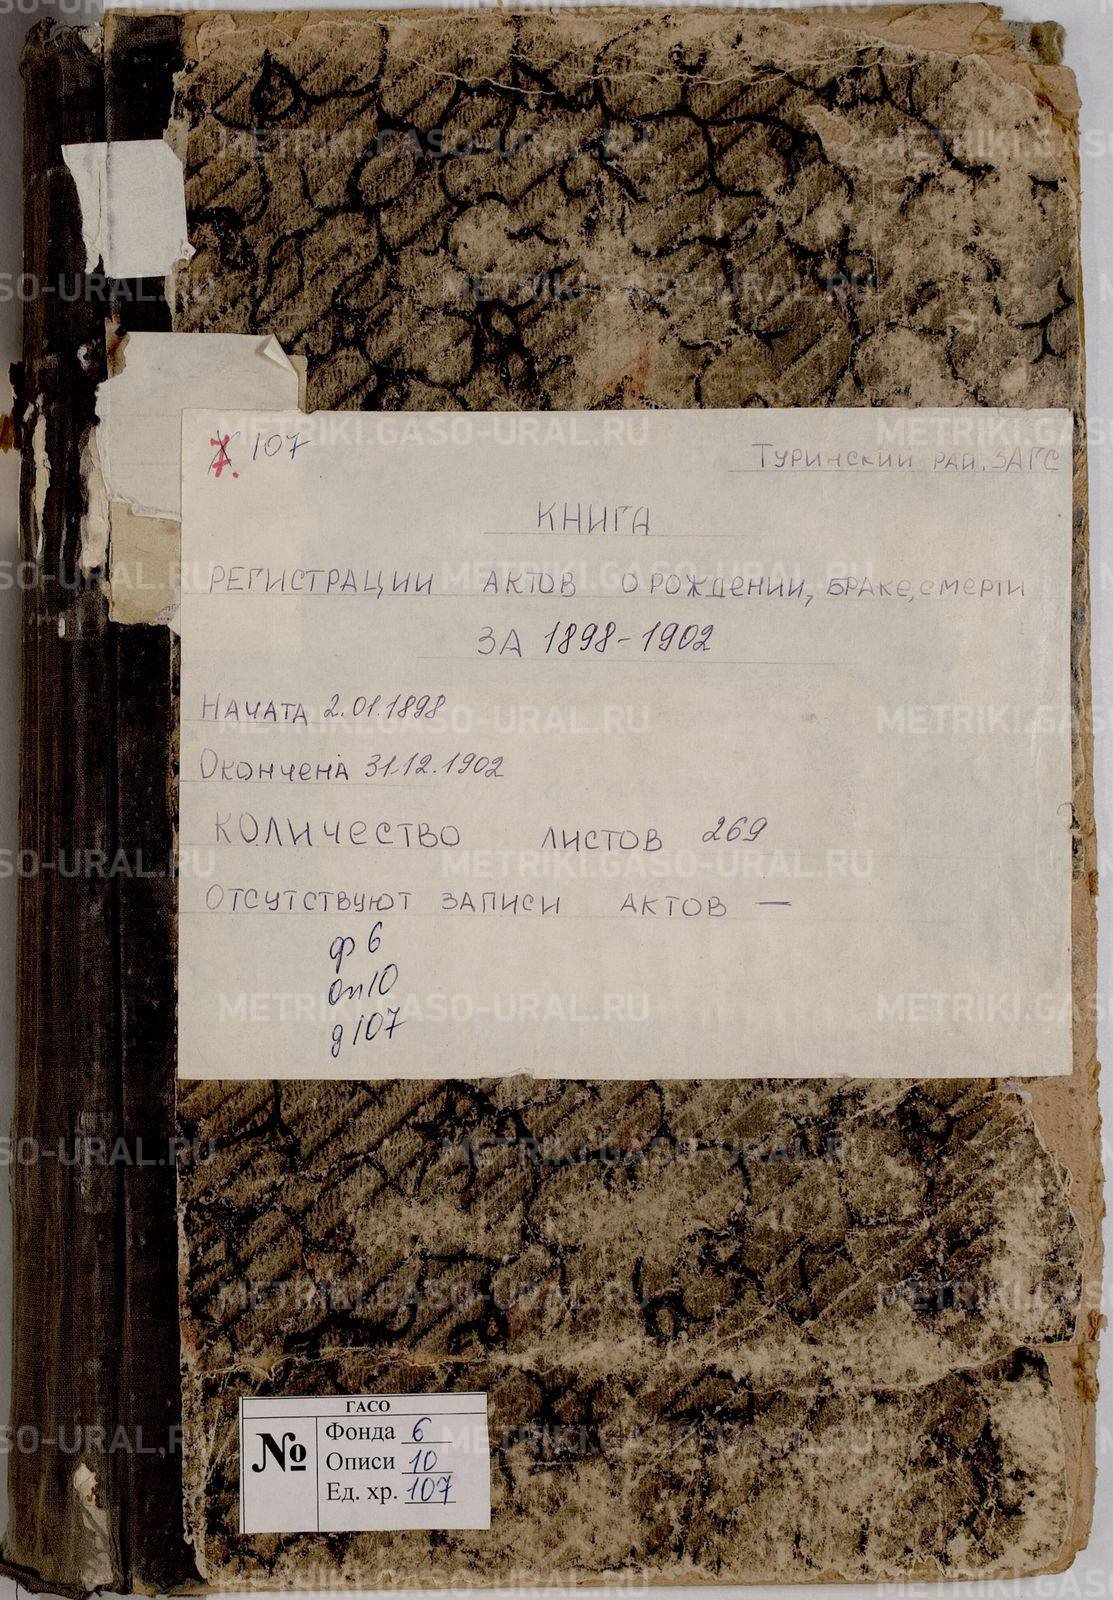 7. 107
ТУРИНСКИЙ РАЙ. ЗАГС
КНИГА
РЕГИСТРАЦИИ АКТОВ О РОЖДЕНИИ, БРАКЕ, СМЕРТИ
ЗА 1898-1902
НАЧАТА 2.01.1898
ОКОНЧЕНА 31.12.1902
КОЛИЧЕСТВО ЛИСТОВ 269
ОТСУТСТВУЮТ ЗАПИСИ АКТОВ —
ф 6
оп 10
д 107
ГАСО
№
Фонда 6
Описи 10
Ед. хр. 107
METRIKI.GASO-URAL.RU